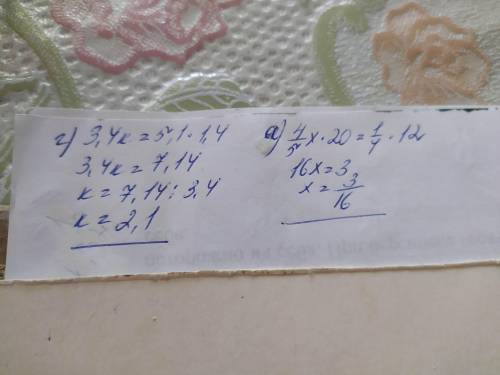 г) 3,4к = 5,1 · 1,4
3,4к = 7,14
к = 7,14 : 3,4
к = 2,1
а) 4/5 х · 20 = 1/4 · 12
16х = 3
х = 3/16